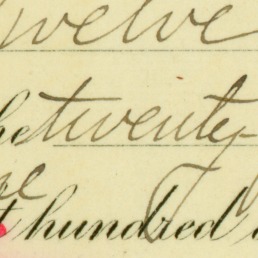 twelve
he twenty-
t hundred